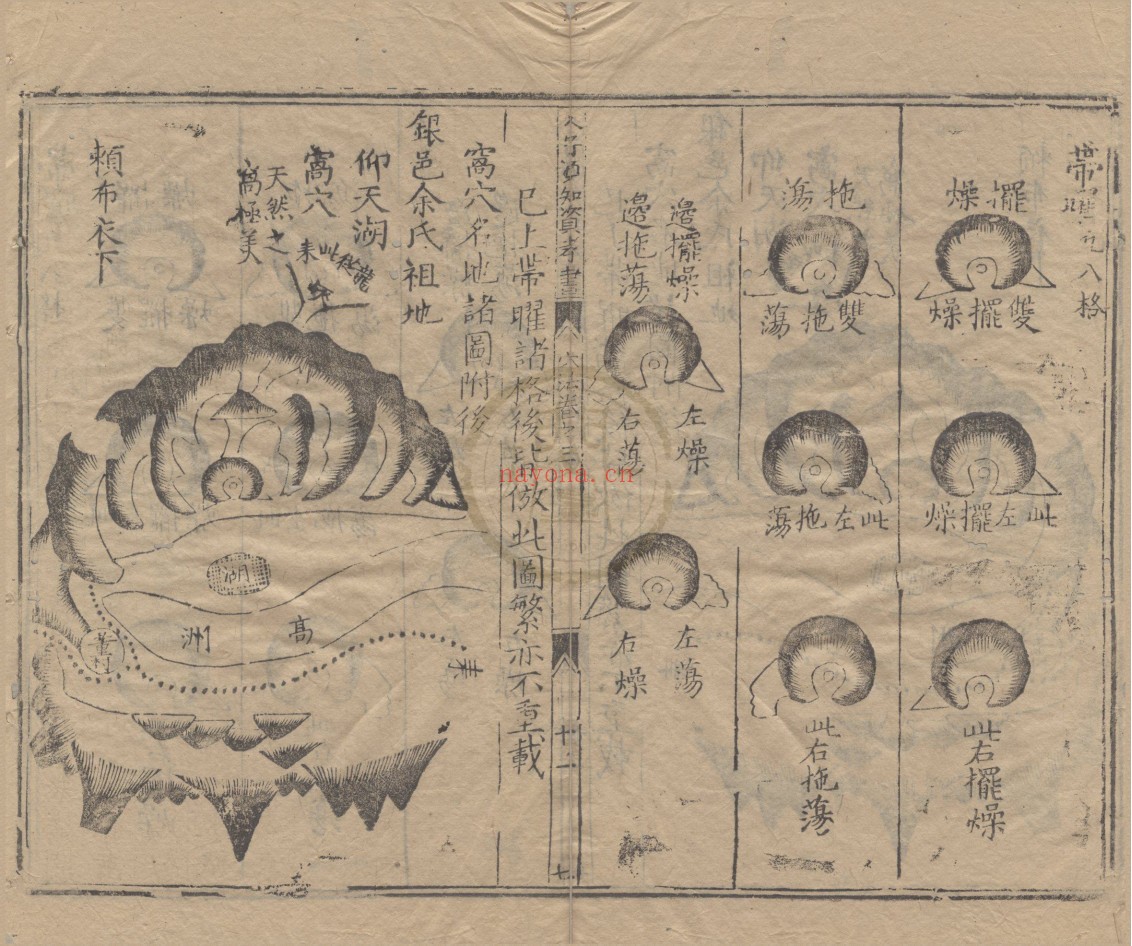 帶曜凡八格
擺燥
雙擺燥
此左擺燥
此右擺燥
拖蕩
雙拖蕩
此左拖蕩
此右拖蕩
邊擺燥
邊拖蕩
左燥
右蕩
左蕩
右燥
人子須知資孝書
穴法卷三
十二
七
已上帶曜諸格後皆倣此圖繁亦不重載
窩穴名地諸圖附後
銀邑余氏祖地
仰天湖
窩穴
天然之
窩極美
龍從此
來
賴布衣下
湖
高
洲
nayona.cn